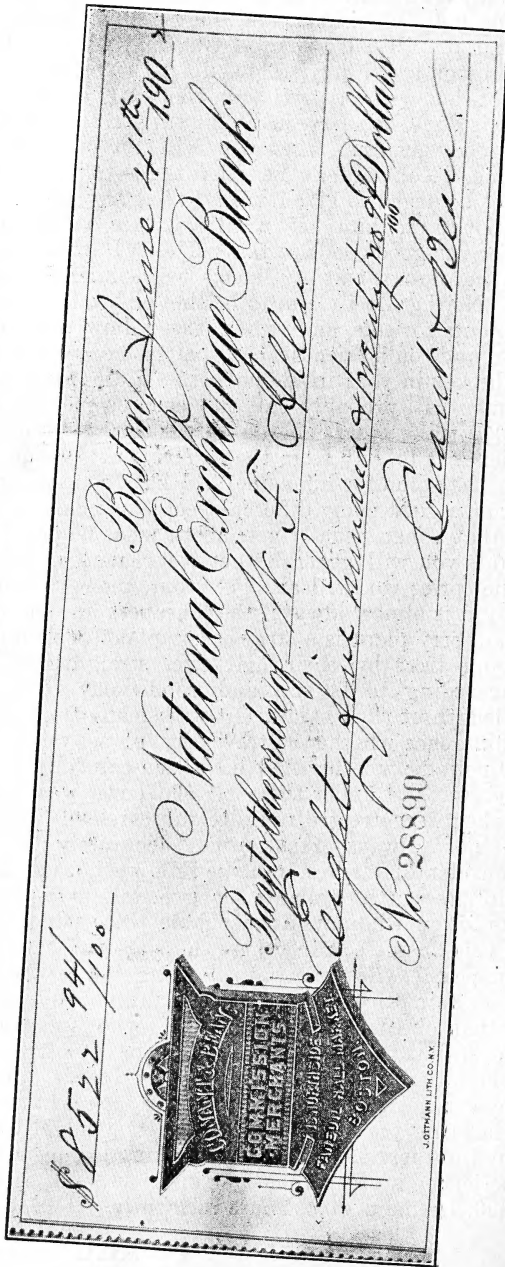 $8522 94/100
Boston, June 4th 190
National Exchange Bank
Pay to the order of W. F. Allen
Eighty five hundred & twenty two 94/100 Dollars
No. 28890 Conant & Bean
CONANT & BEAN
COMMISSION
MERCHANTS
NORTH SIDE
FANEUIL HALL MARKET
BOSTON
J. OTTMANN LITH CO. N.Y.